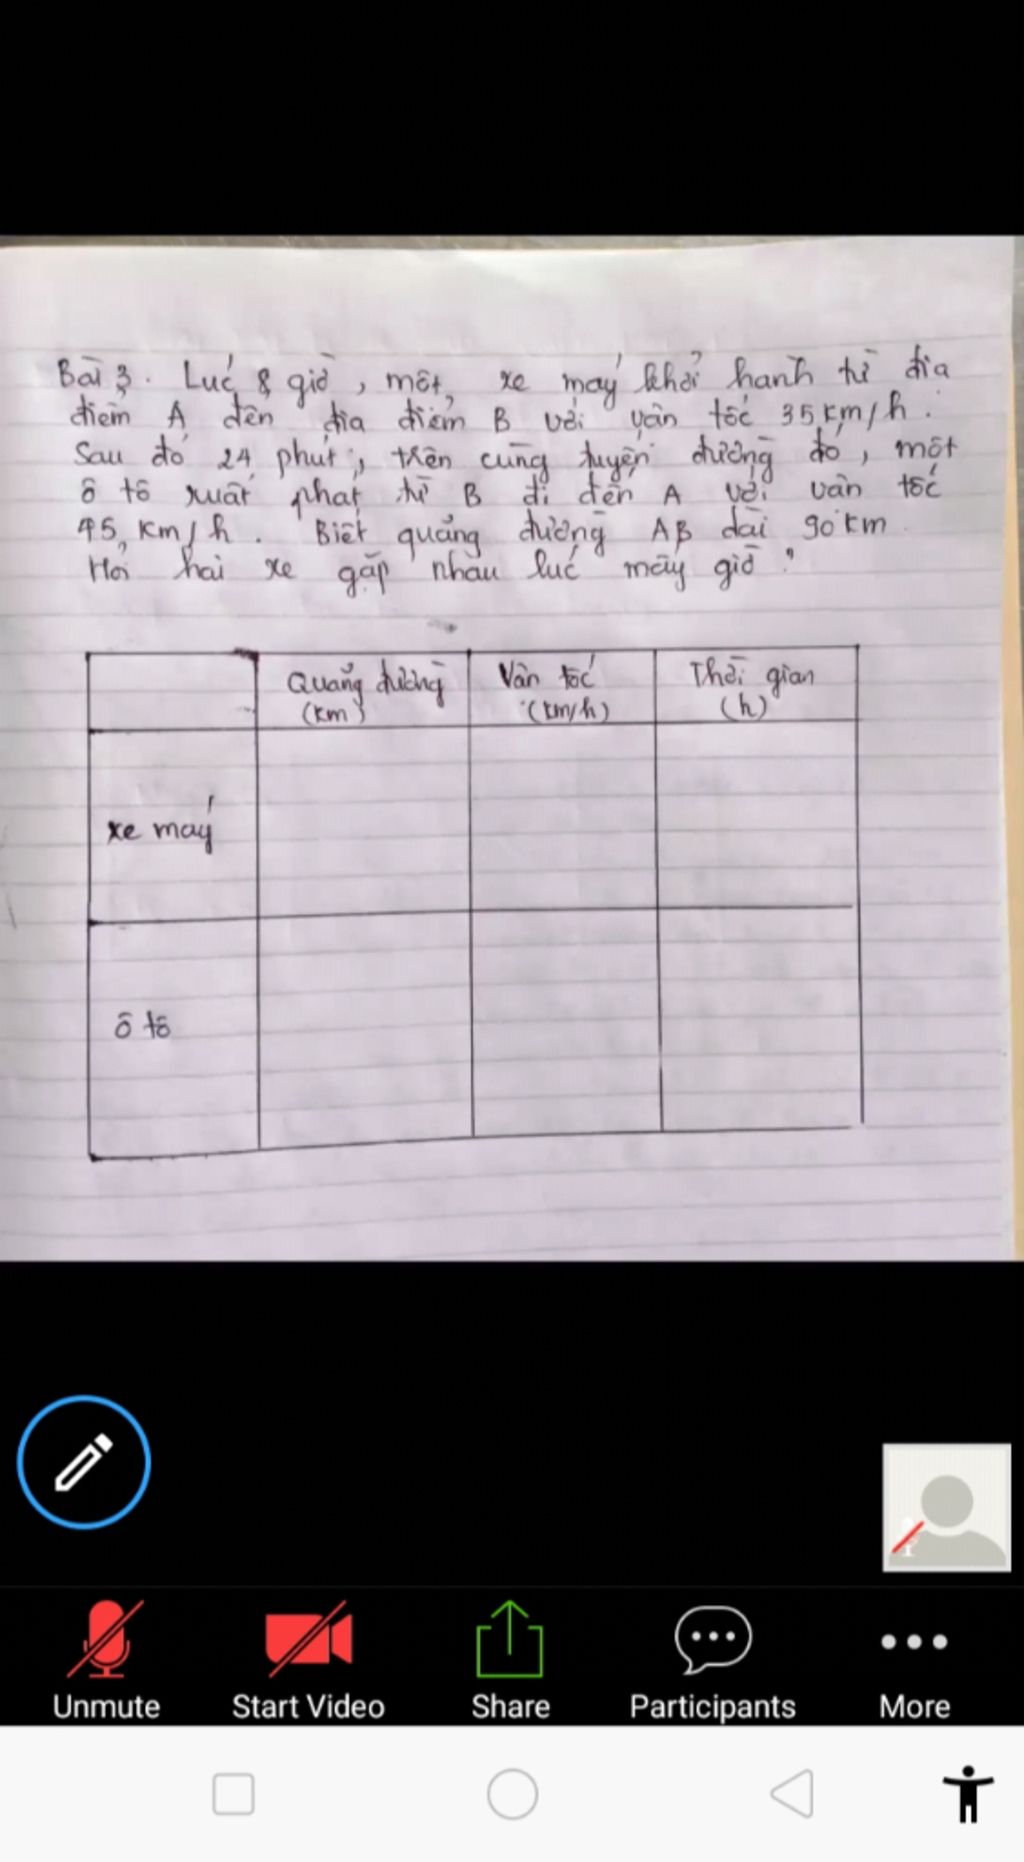 Bài 3. Lúc 8 giờ, một xe máy khởi hành từ địa
điểm A đến địa điểm B với vận tốc 35 km/h.
Sau đó 24 phút, trên cùng tuyến đường đó, một
ô tô xuất phát từ B đi đến A với vận tốc
45 km/h. Biết quãng đường AB dài 90 km.
Hỏi hai xe gặp nhau lúc mấy giờ?
Quãng đường (km)
Vận tốc (km/h)
Thời gian (h)
xe máy
ô tô
Unmute
Start Video
Share
Participants
More